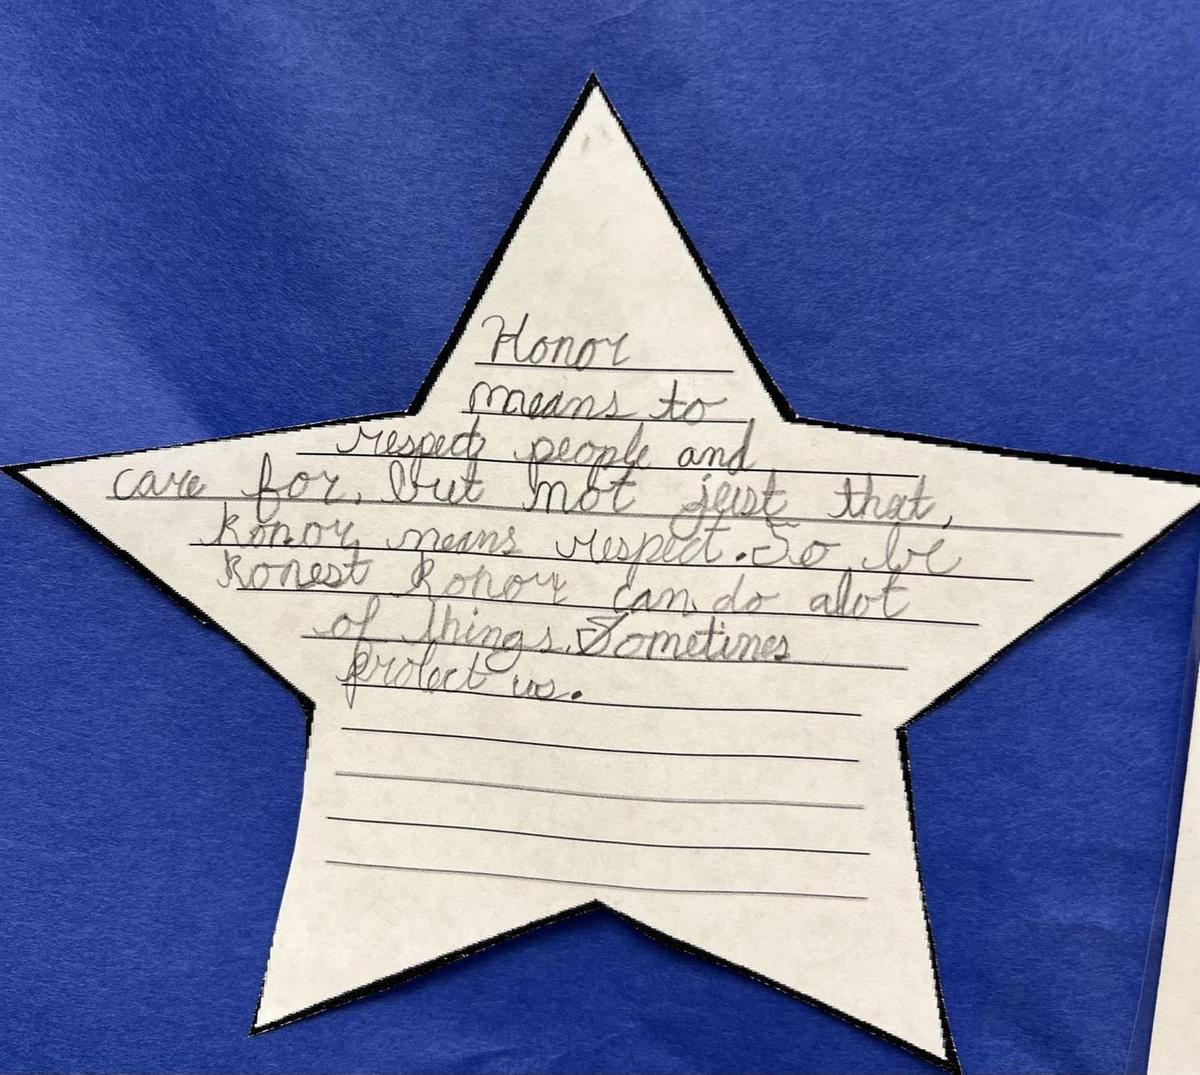 Honor
means to
respect people and
care for, but not just that,
honor means respect. So be
honest honor can do alot
of things. Sometimes
protect us.